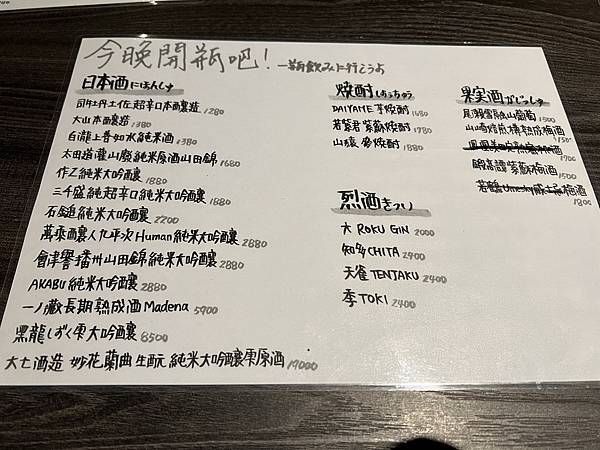 今晩開瓶吧! 一緒飲みに行こうよ
日本酒にほんしゅ
司牡丹土佐超辛口本醸造 1280
大山本醸造 1380
白瀧上善如水純米酒 1380
太田道灌山廃純米原酒山田錦 1680
作乙純米大吟釀 1880
三千盛純超辛口純米大吟釀 1880
石鎚純米大吟釀 2200
萬乘酒釀人九平次Human純米大吟釀 2280
會津響播州山田錦純米大吟釀 2880
AKABU純米大吟釀 2880
一ノ蔵長期熟成酒Madena 5900
黑龍しずく雫大吟釀 8500
大七酒造 妙花蘭曲生酛純米大吟釀雫原酒 19000
焼酎しょうちゅう
DAIYAME芋燒酎 1680
若紫君紫蘇燒酎 1780
山猿麥燒酎 1880
烈酒きつい
六 ROKU GIN 2000
知多 CHITA 2400
天雀 TENJAKU 2400
季 TOKI 2400
果実酒かじっしゅ
尾瀬雪融山葡萄 1500
山崎焙煎樽熟成梅酒 1500
鳳凰美田 梅酒 1900
錦高譚紫蘇梅酒 1500
若鶴Umesky威士忌梅酒 1800